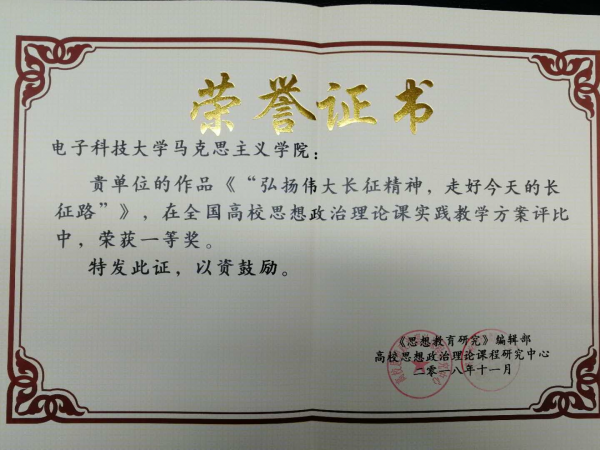 荣誉证书
电子科技大学马克思主义学院：
貴单位的作品《“弘扬伟大长征精神，走好今天的长
征路”》，在全国高校思想政治理论课实践教学方案评比
中，荣获一等奖。
特发此证，以资鼓励。
《思想教育研究》编辑部
高校思想政治理论课程研究中心
二零一八年十一月